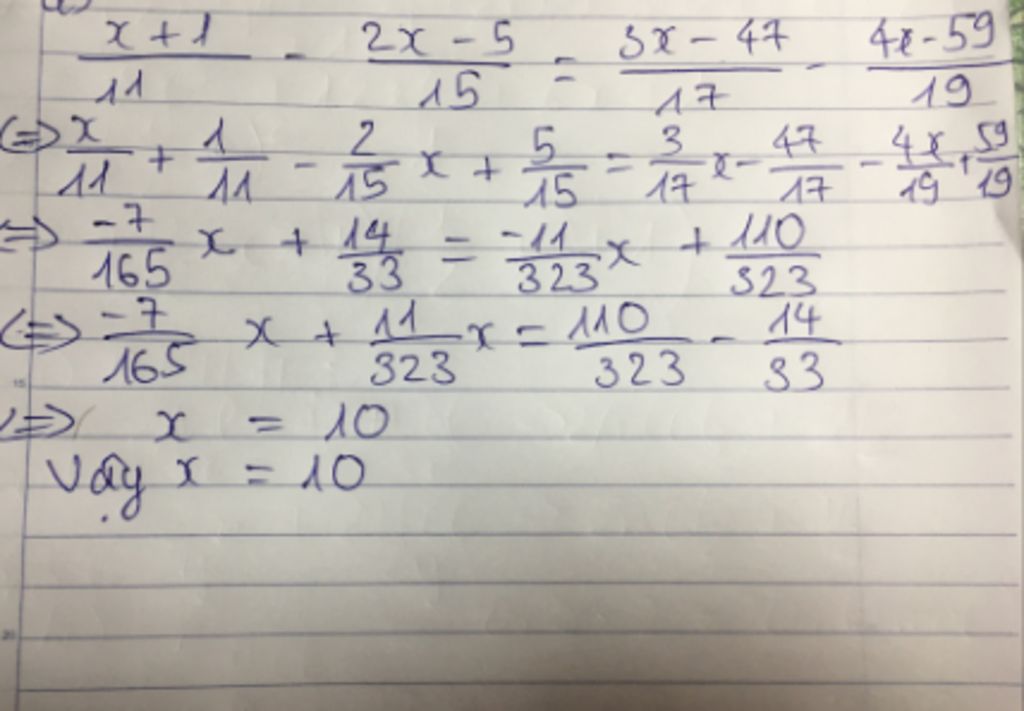 (x + 1)/11 - (2x - 5)/15 = (3x - 47)/17 - (4x - 59)/19
<=> x/11 + 1/11 - 2/15 x + 5/15 = 3/17 x - 47/17 - 4x/19 + 59/19
<=> -7/165 x + 14/33 = -11/323 x + 110/323
<=> -7/165 x + 11/323 x = 110/323 - 14/33
<=> x = 10
Vậy x = 10